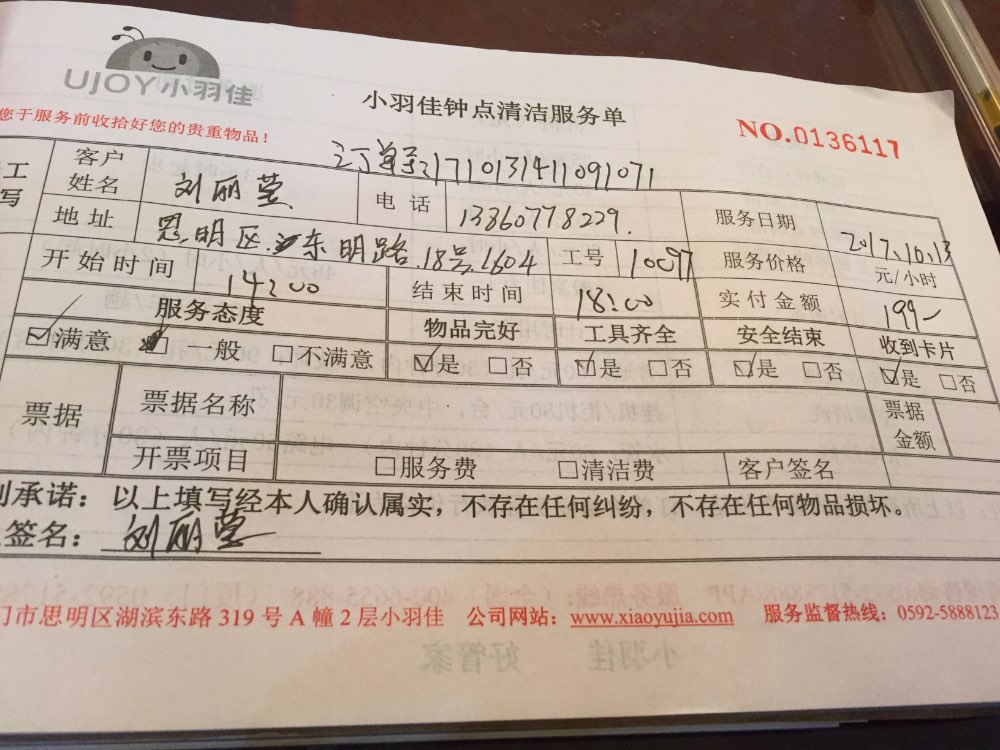 UJOY小羽佳
小羽佳钟点清洁服务单
NO.0136117
您于服务前收拾好您的贵重物品！
订单号:1710131411091071
工 写
客户姓名 刘丽莹 电话 13860778229 服务日期 2017.10.13
地址 思明区东明路.18号1604 工号 10097 服务价格 元/小时
开始时间 14:00 结束时间 18:00 实付金额 199-
服务态度 物品完好 工具齐全 安全结束 收到卡片
☑满意 □一般 □不满意 ☑是 □否 ☑是 □否 ☑是 □否 ☑是 □否
票据 票据名称 票据金额
开票项目 □服务费 □清洁费 客户签名
承诺：以上填写经本人确认属实，不存在任何纠纷，不存在任何物品损坏。
签名：刘丽莹
门市思明区湖滨东路 319 号 A 幢 2 层小羽佳 公司网站：www.xiaoyujia.com 服务监督热线：0592-5888123
小羽佳 好管家